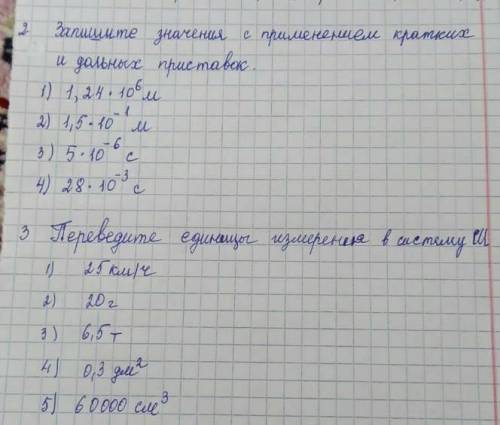 2 Запишите значения с применением кратких
и дольных приставок.
1) 1,24 · 10⁶ м
2) 1,5 · 10⁻¹ м
3) 5 · 10⁻⁶ с
4) 28 · 10⁻³ с
3 Переведите единицы измерения в систему СИ
1) 25 км/ч
2) 20 г
3) 6,5 т
4) 0,3 дм²
5) 60000 см³